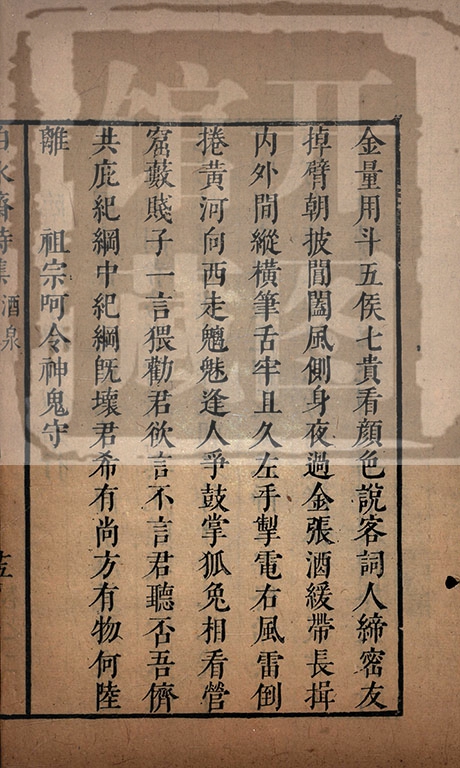 金量用斗五侯七貴看顔色說客詞人締密友
掉臂朝披閶闔風側身夜過金張酒緩帶長揖
内外間縱橫筆舌牢且久左手掣電右風雷倒
捲黄河向西走魑魅逢人爭鼓掌狐兔相看營
窟藪賤子一言猥勸君欲言不言君聽否吾儕
共庇紀綱中紀綱既壞君希有尚方有物何陸
離　祖宗呵令神鬼守
白水齋詩集 酒泉
开图
馆藏